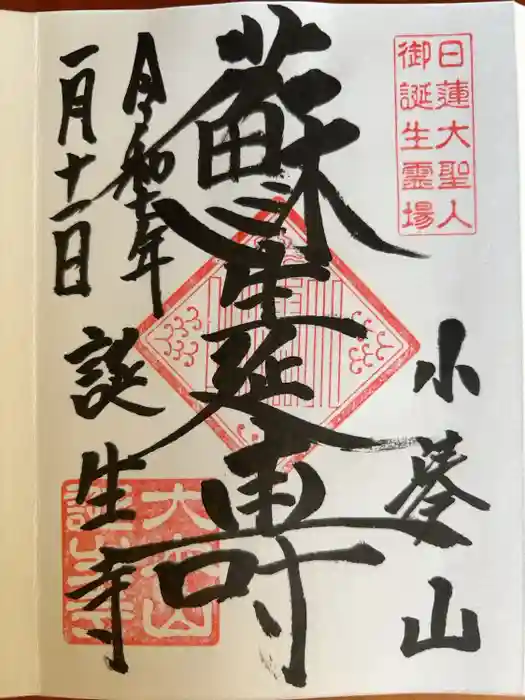 日蓮大聖人
御誕生霊場
小湊山
蘇生延壽
令和七年
一月十一日
誕生寺
大本山
誕生寺